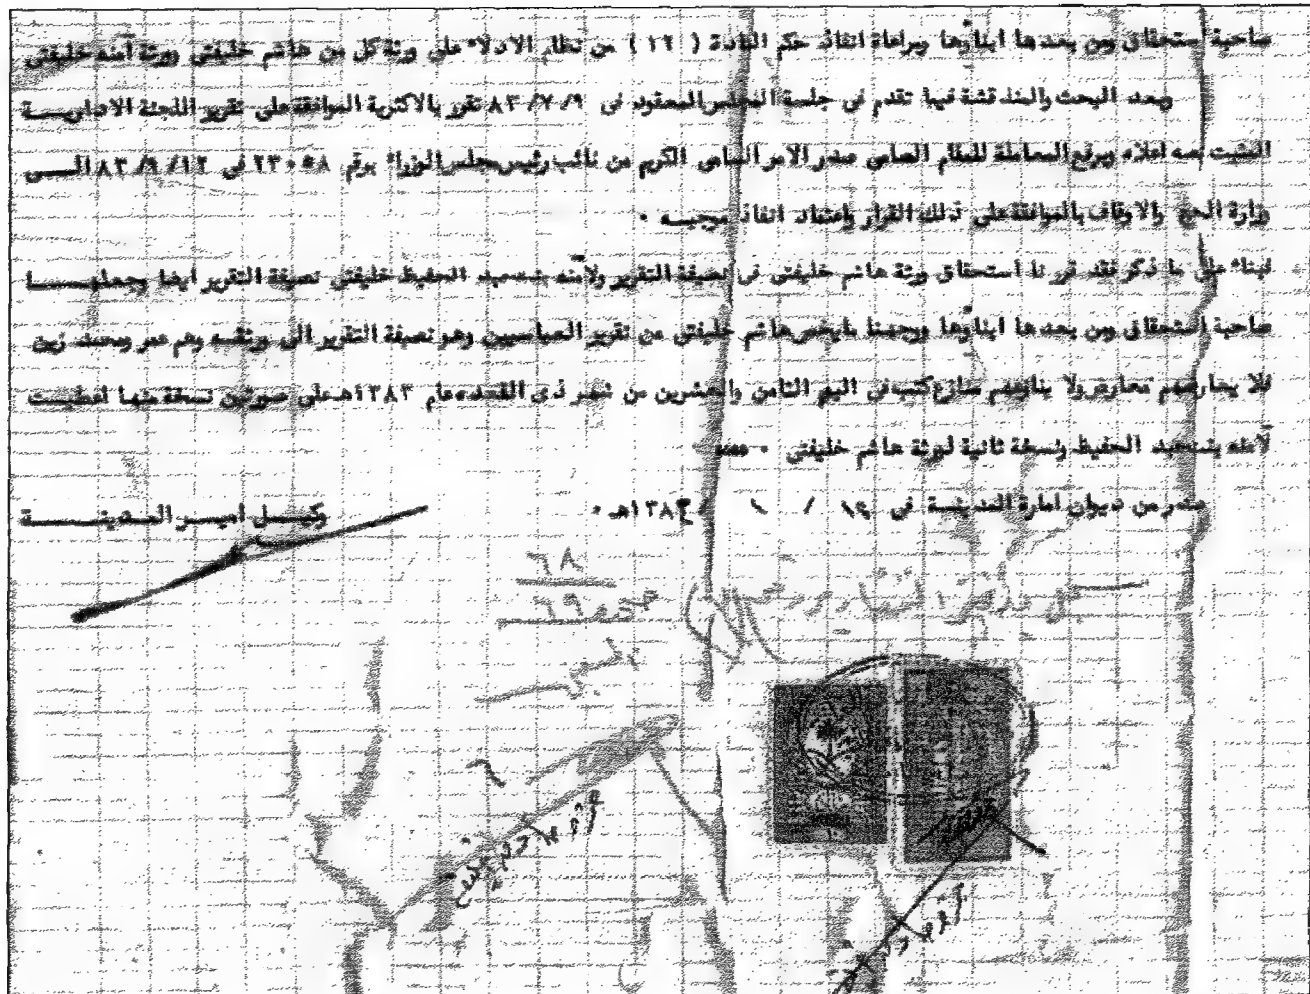 صاحبة استحقاق ومن بعدها ابناؤها وبراعاة انفاذ حكم المادة ( ١٢ ) من نظام الادلاء على ورثة كل من هاشم خليفتى وورثة آمنه خليفتى
وبعد البحث والمناقشة فيما تقدم فى جلسة المجلس المعقود فى ٨٣/٧/٩ تقرر بالاكثرية الموافقة على تقرير اللجنة الادارية
المثبت نصه اعلاه وبرفع المعاملة للمقام السامى صدر الامر السامى الكريم من نائب رئيس مجلس الوزراء برقم ٢٣٠٥٨ فى ٨٣/٩/١٢ الى
وزارة الحج والاوقاف بالموافقة على ذلك القرار واعتماد انفاذ موجبه ٠
فبناء على ما ذكر فقد قررنا استحقاق ورثة هاشم خليفتى فى نصيفة التقرير ولآمنه بنت عبد الحفيظ خليفتى نصيفة التقرير ايضا وجعلها
صاحبة استحقاق ومن بعدها ابناؤها ووجهنا ما يخص هاشم خليفتى من تقرير العباسيين وهو نصيفة التقرير الى ورثته وهم عمر ومحمد زين
فلا يعارضهم معارض ولا ينازعهم منازع كتب فى اليوم الثامن والعشرين من شهر ذى القعده عام ١٣٨٣هـ على صورتين نسخة منها اعطيت
لآمنه بنت عبد الحفيظ ونسخة ثانية لورثة هاشم خليفتى ٠
صدر من ديوان امارة المدينة فى ١٤ / ١ / ١٣٨٤هـ ٠ وكيل امير المدينة
٦٨
٦٩